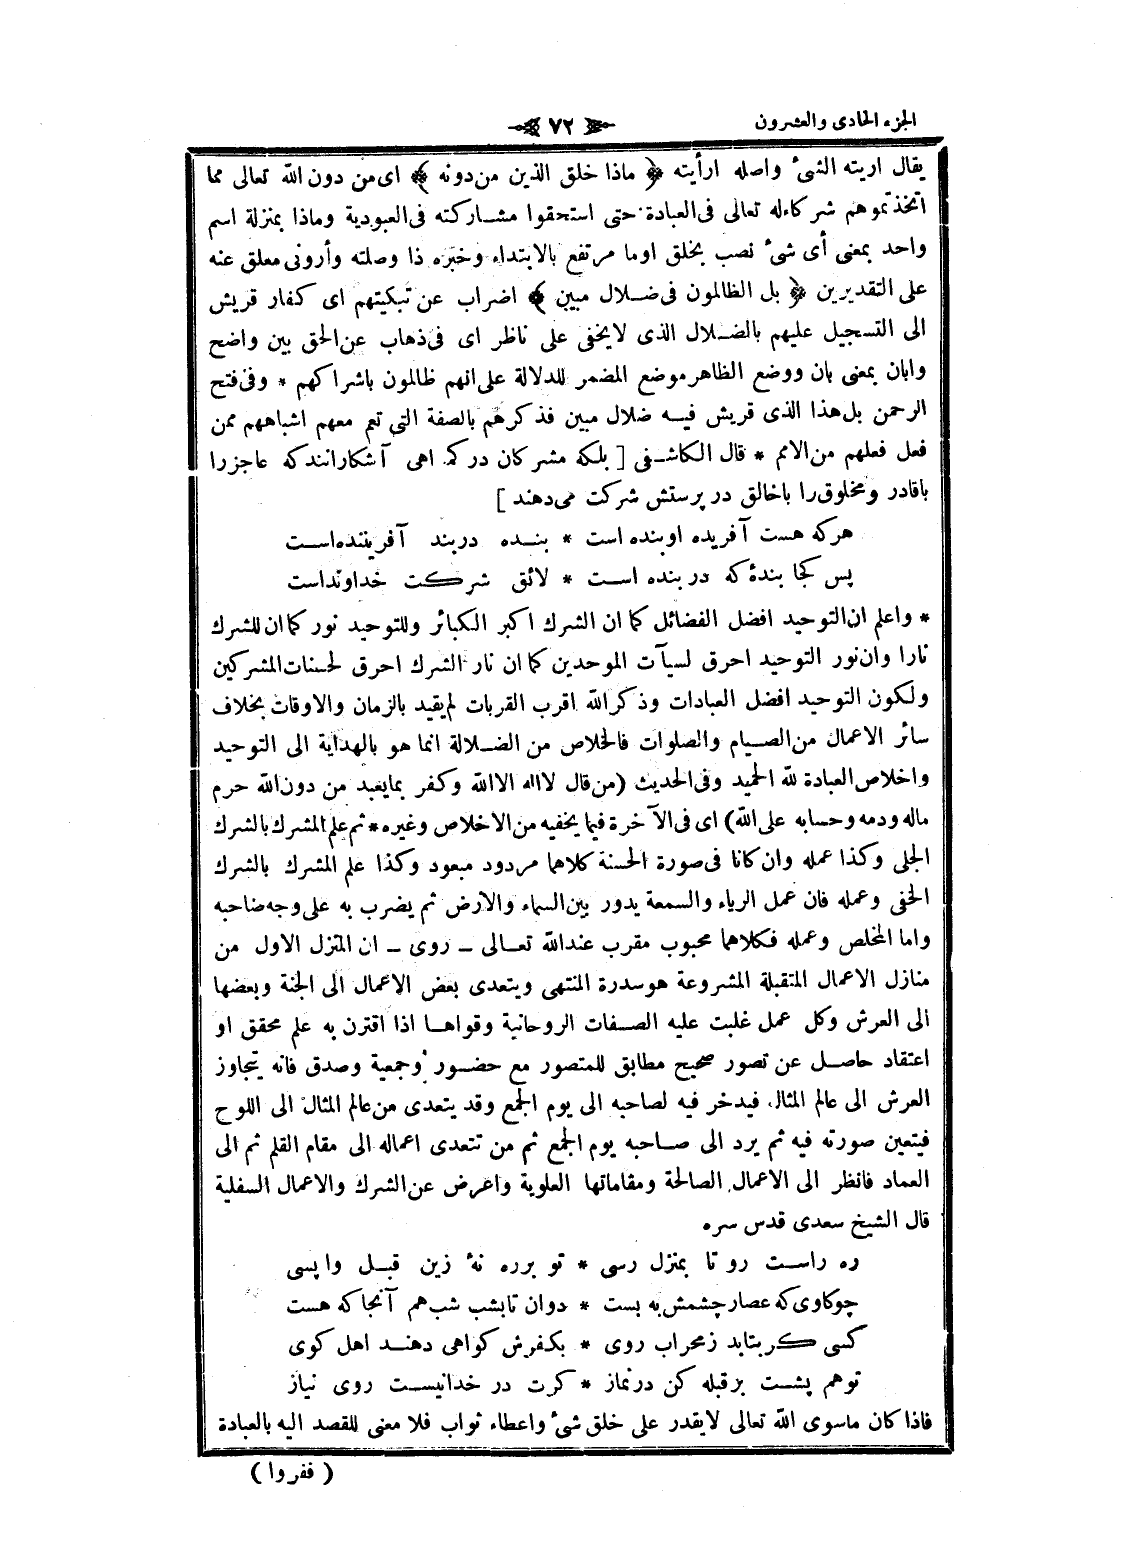 الجزء الحادى والعشرون
٧٢
يقال اريته الشئ واصله ارأيته ﴿ ماذا خلق الذين من دونه ﴾ اى من دون الله تعالى مما
اتخذتموهم شركاءله تعالى فى العبادة حتى استحقوا مشاركته فى العبودية وماذا بمنزلة اسم
واحد بمعنى أى شئ نصب بخلق اوما مرتفع بالابتداء وخبره ذا وصلته وأرونى معلق عنه
على التقديرين ﴿ بل الظالمون فى ضلال مبين ﴾ اضراب عن تبكيتهم اى كفار قريش
الى التسجيل عليهم بالضلال الذى لايخفى على ناظر اى فى ذهاب عن الحق بين واضح
وابان بمعنى بان ووضع الظاهر موضع المضمر للدلالة على انهم ظالمون باشراكهم * وفى فتح
الرحمن بل هذا الذى قريش فيه ضلال مبين فذكرهم بالصفة التى تعم معهم اشباههم ممن
فعل فعلهم من الامم * قال الكاشفى [ بلكه مشركان دركمراهى آشكارانندكه عاجزرا
باقادر ومخلوق را باخالق در پرستش شركت مى دهند ]
هركه هست آفريده اوبنده است * بنده دربند آفريننده است
پس كجا بندهٔ كه در بنده است * لائق شركت خداونداست
* واعلم ان التوحيد افضل الفضائل كما ان الشرك اكبر الكبائر وللتوحيد نور كما ان للشرك
نارا وان نور التوحيد احرق لسيآت الموحدين كما ان نار الشرك احرق لحسنات المشركين
ولكون التوحيد افضل العبادات وذكر الله اقرب القربات لم يقيد بالزمان والاوقات بخلاف
سائر الاعمال من الصيام والصلوات فالخلاص من الضلالة انما هو بالهداية الى التوحيد
واخلاص العبادة لله الحميد وفى الحديث (من قال لااله الاالله وكفر بمايعبد من دون الله حرم
ماله ودمه وحسابه على الله) اى فى الآخرة فيما يخفيه من الاخلاص وغيره * ثم علم المشرك بالشرك
الجلى وكذا عمله وان كانا فى صورة الحسنة كلاهما مردود مبعود وكذا علم المشرك بالشرك
الخفى وعمله فان عمل الرياء والسمعة يدور بين السماء والارض ثم يضرب به على وجه صاحبه
واما المخلص وعمله فكلاهما محبوب مقرب عند الله تعالى ـ روى ـ ان المنزل الاول من
منازل الاعمال المتقبلة المشروعة هو سدرة المنتهى ويتعدى بعض الاعمال الى الجنة وبعضها
الى العرش وكل عمل غلبت عليه الصفات الروحانية وقواها اذا اقترن به علم محقق او
اعتقاد حاصل عن تصور صحيح مطابق للمتصور مع حضور وجمعية وصدق فانه يتجاوز
العرش الى عالم المثال فيدخر فيه لصاحبه الى يوم الجمع وقد يتعدى من عالم المثال الى اللوح
فيتعين صورته فيه ثم يرد الى صاحبه يوم الجمع ثم من تتعدى اعماله الى مقام القلم ثم الى
العماد فانظر الى الاعمال الصالحة ومقاماتها العلوية واعرض عن الشرك والاعمال السفلية
قال الشيخ سعدى قدس سره
ره راست رو تا بمنزل رسى * تو برره نهٔ زين قبل واپسى
چوكاوى كه عصار چشمش به بست * دوان تابشب شب هم آنجا كه هست
كسى كر بتابد زمحراب روى * بكفرش كواهى دهند اهل كوى
توهم پشت برقبله كن درنماز * كرت در خدانيست روى نياز
فاذا كان ماسوى الله تعالى لايقدر على خلق شئ واعطاء ثواب فلا معنى للقصد اليه بالعبادة
( ففروا )